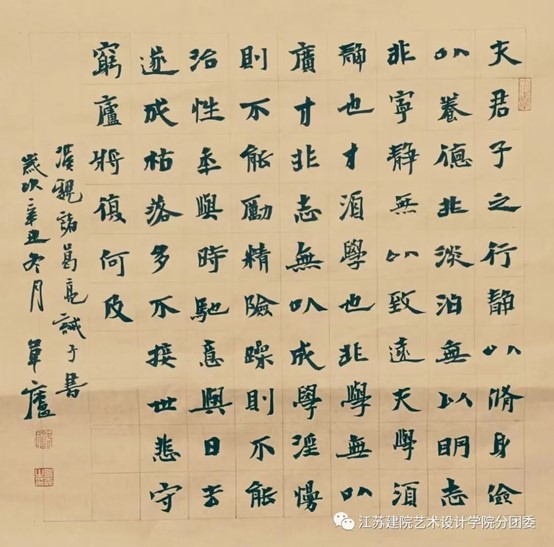 夫君子之行靜以脩身儉
以養德非淡泊無以明志
非寧靜無以致遠夫學須
靜也才須學也非學無以
廣才非志無以成學淫慢
則不能勵精險躁則不能
治性年與時馳意與日去
遂成枯落多不接世悲守
窮廬將復何及
漢魏諸葛亮誡子書
歲次辛丑冬月 廬
江苏建院艺术设计学院分团委